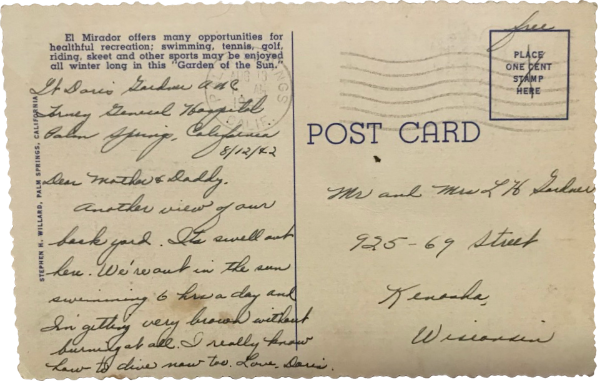 El Mirador offers many opportunities for
healthful recreation; swimming, tennis, golf,
riding, skeet and other sports may be enjoyed
all winter long in this "Garden of the Sun."
Lt Doris Gardner A.N.C.
Torney General Hospital
Palm Springs, California
8/12/42
Dear Mother & Daddy,
Another view of our
back yard. Its swell out
here. We're out in the sun
swimming 6 hrs a day and
I'm getting very brown without
burning at all. I really know
how to dive now too. Love, Doris.
STEPHEN H. WILLARD, PALM SPRINGS, CALIFORNIA
free
PLACE
ONE CENT
STAMP
HERE
POST CARD
Mr and Mrs L H Gardner
925-69 Street
Kenosha,
Wisconsin